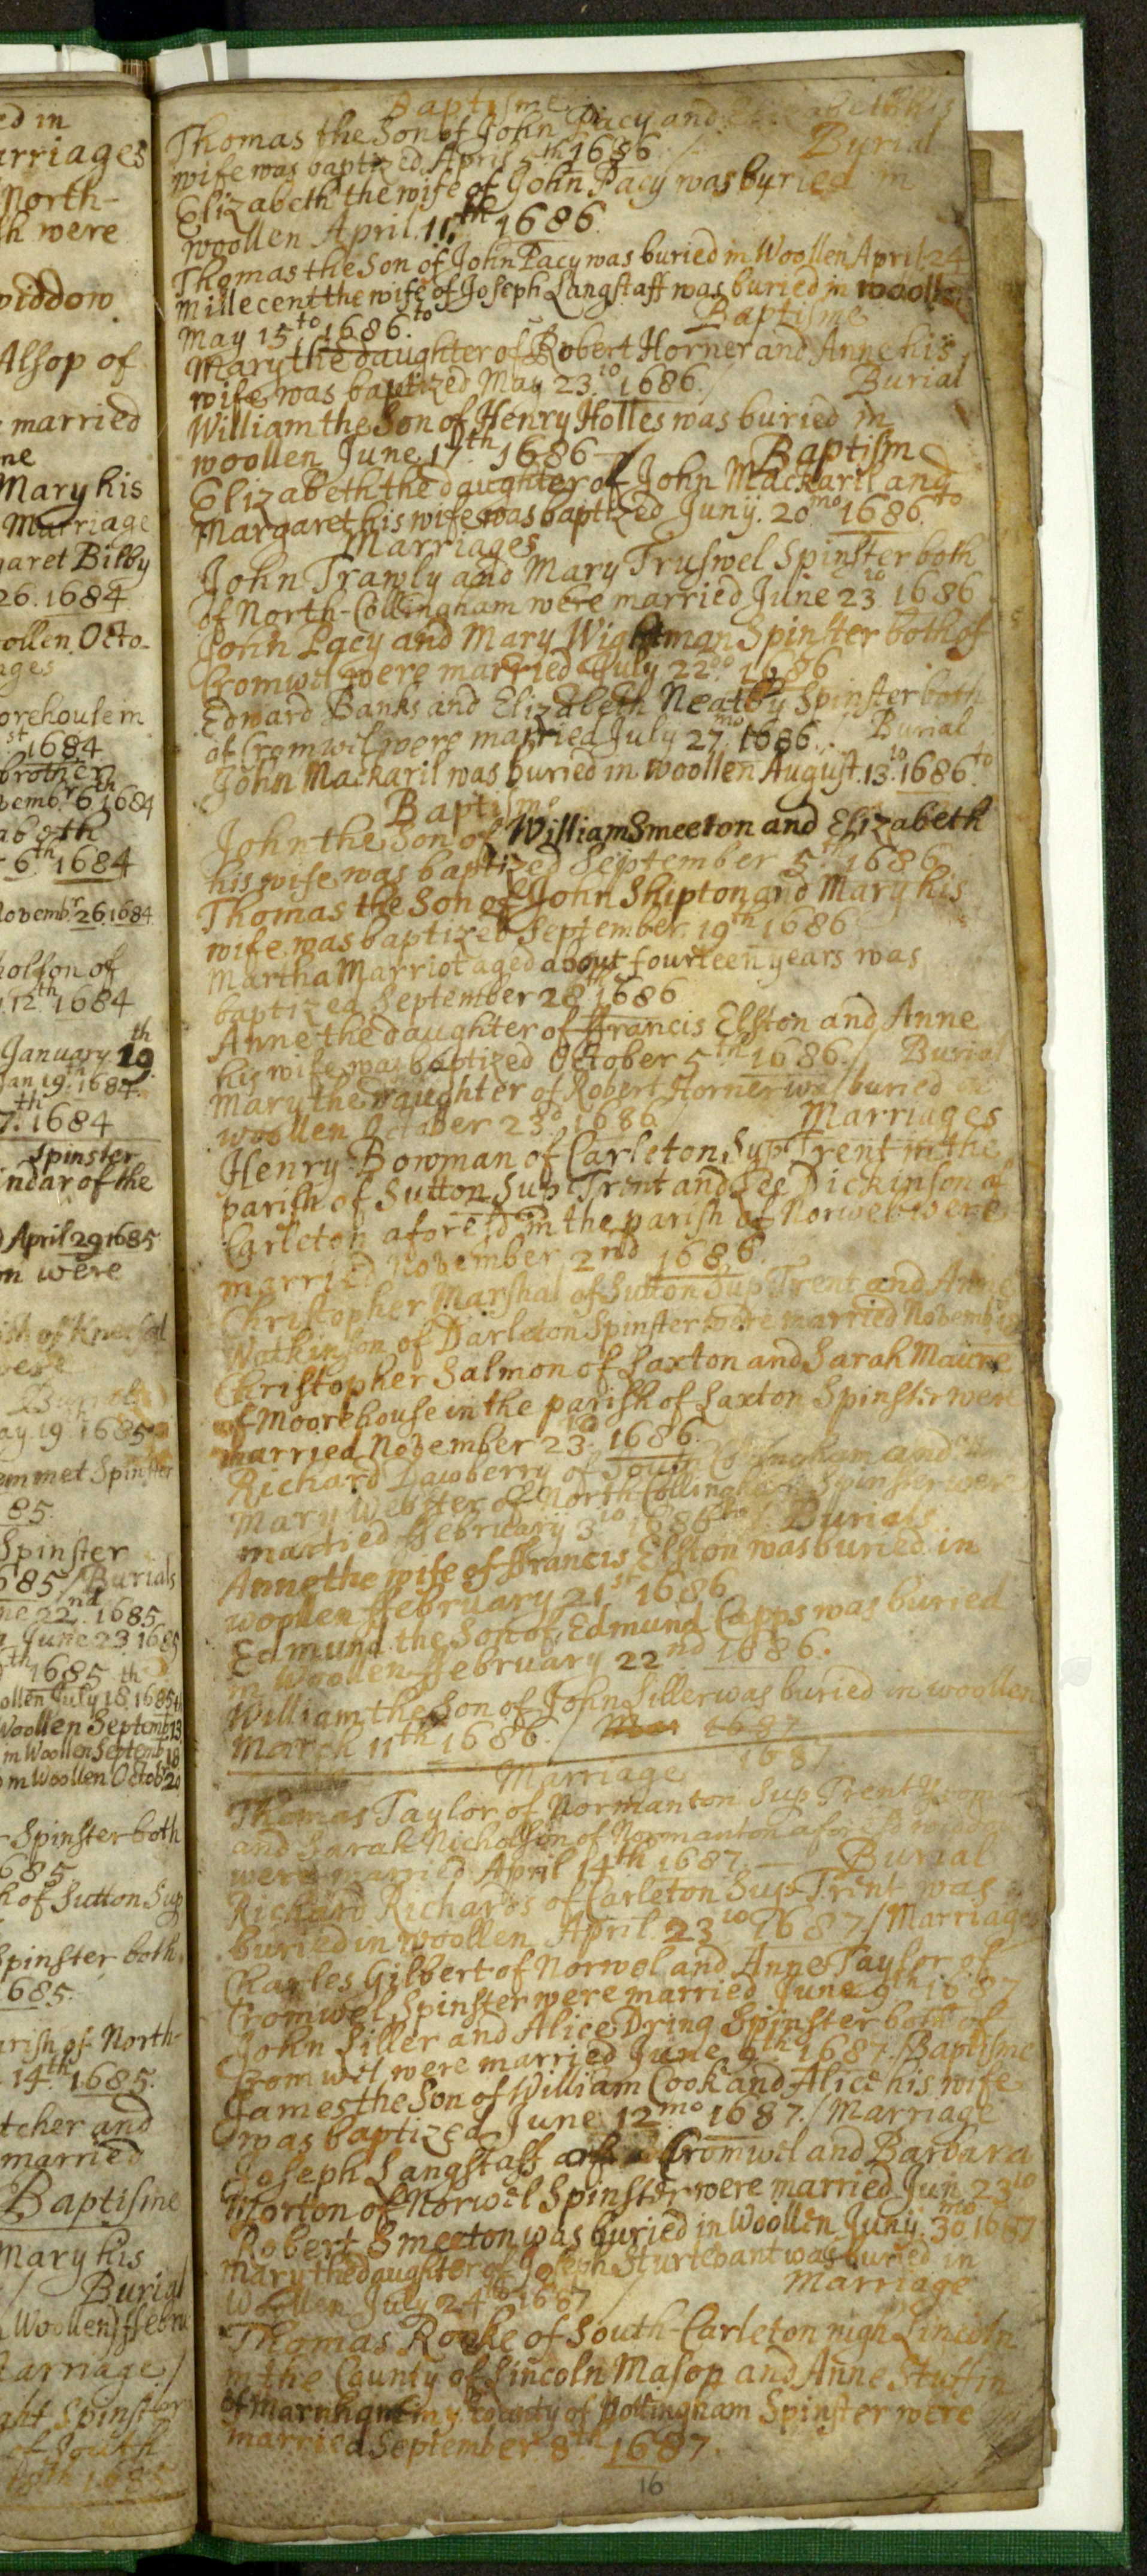 ed in
arriages
North-
h were
widdow
Alsop of
married
ne
Mary his
Marriage
garet Bilby
26. 1684
ollen Octo-
ages
orehouse in
st 1684
brother
vembr 6th 1684
abeth
6th 1684
Novembr. 26. 1684
holson of
12th 1684
January 19th
Jan 19th 1684
7th. 1684
Spinster
ndar of the
April 29 1685
m were
Burial
ay. 19 1685
emmet Spinster
85.
Spinster
685 / Burials
ne 22nd. 1685
June 23 1685
th 1685
ollen July 18 1685
Woollen Septemb 13
in Woollen Septemb 18
in Woollen Octob 20
Spinster both
685
h of Sutton Sup
Spinster both
1685.
arish of North-
14th 1685.
tcher and
married
Baptisme
Mary his
Burial
Woollen ffebru
Marriage /
ght Spinster
of South
1685
Baptisme
Thomas the Son of John Pacy and Elizabeth his
wife was baptized April 5th 1686 / Burial
Elizabeth the wife of John Pacy was buried in
woollen April. 11th 1686.
Thomas the Son of John Pacy was buried in Woollen April 24
Millecent the wife of Joseph Langstaff was buried in woollen
May 15to 1686.to Baptisme
Mary the daughter of Robert Horner and Anne his
wife was baptized May 23.io 1686. Burial
William the Son of Henry Holles was buried in
woollen June 17th 1686 Baptism
Elizabeth the daughter of John Mackaril and
Margaret his wife was baptized Junij. 20mo 1686.to
Marriages
John Trawly and Mary Truswel Spinster both
of North-Collingham were married June 23io 1686
John Pacy and Mary Wightman Spinster both of
Cromwel were married July 22do 1686
Edward Banks and Elizabeth Neatby Spinster both
of Cromwil were married July 27mo 1686. Burial
John Mackaril was buried in woollen August. 13io. 1686to
Baptisme
John the Son of William Smeeton and Elizabeth
his wife was baptized September 5th 1686
Thomas the Son of John Shipton and Mary his
wife was baptized September. 19th 1686
Martha Marriot aged about fourteen years was
baptized September 28th 1686
Anne the daughter of ffrancis Elston and Anne
his wife was baptized October 5th 1686. / Burial
Mary the daughter of Robert Horner was buried in
woollen October 23o 1686 Marriages
Henry Bowman of Carleton Sup Trent in the
parish of Sutton Sup Trent and Dickinson of
Carleton aforesd in the parish of Norwel were
married November 2nd 1686.
Christopher Marshal of Sutton Sup Trent and Anne
Watkinson of Darleton Spinster were married Novemb
Christopher Salmon of Laxton and Sarah
of Moorehouse in the parish of Laxton Spinster were
married November 23io. 1686.
Richard Dawberry of South Collingham and
Mary Webster of North Collingham Spinster were
married ffebruary 3io 1686to / Burials
Anne the wife of ffrancis Elston was buried in
woollen ffebruary 21st 1686
Edmund the Son of Edmund Capps was buried
in Woollen ffebruary 22nd 1686.
William the Son of John Siller was buried in woollen
March 11th 1686. / Mar 1687
1687
Marriage
Thomas Taylor of Normanton Sup Trent
and Sarah Nicholson of Normanton
were married April 14th 1687. — Burial
Richard Richards of Carleton Sup Trent was
buried in woollen April. 23io 1687 / Marriages
Charles Gilbert of Norwel and Anne Taylor of
Cromwel Spinster were married June 9th 1687
John Siller and Alice Dring Spinster both of
Cromwel were married June 9th 1687. / Baptisme
James the Son of William Cook and Alice his wife
was baptized June 12mo 1687. / Marriage
Joseph Langstaff of Cromwel and Barbara
Morton of Norwel Spinster were married Jun 23io
Robert Smeeton was buried in Woollen Junij. 30mo 1687
Mary the daughter of Joseph Sturtevant was buried in
Woollen July 24to 1687 Marriage
Thomas Rooke of South-Carleton nigh Lincoln
in the County of Lincoln Mason and Anne Stuffin
of Marnham in ye County of Nottingham Spinster were
married September 8th 1687.
16